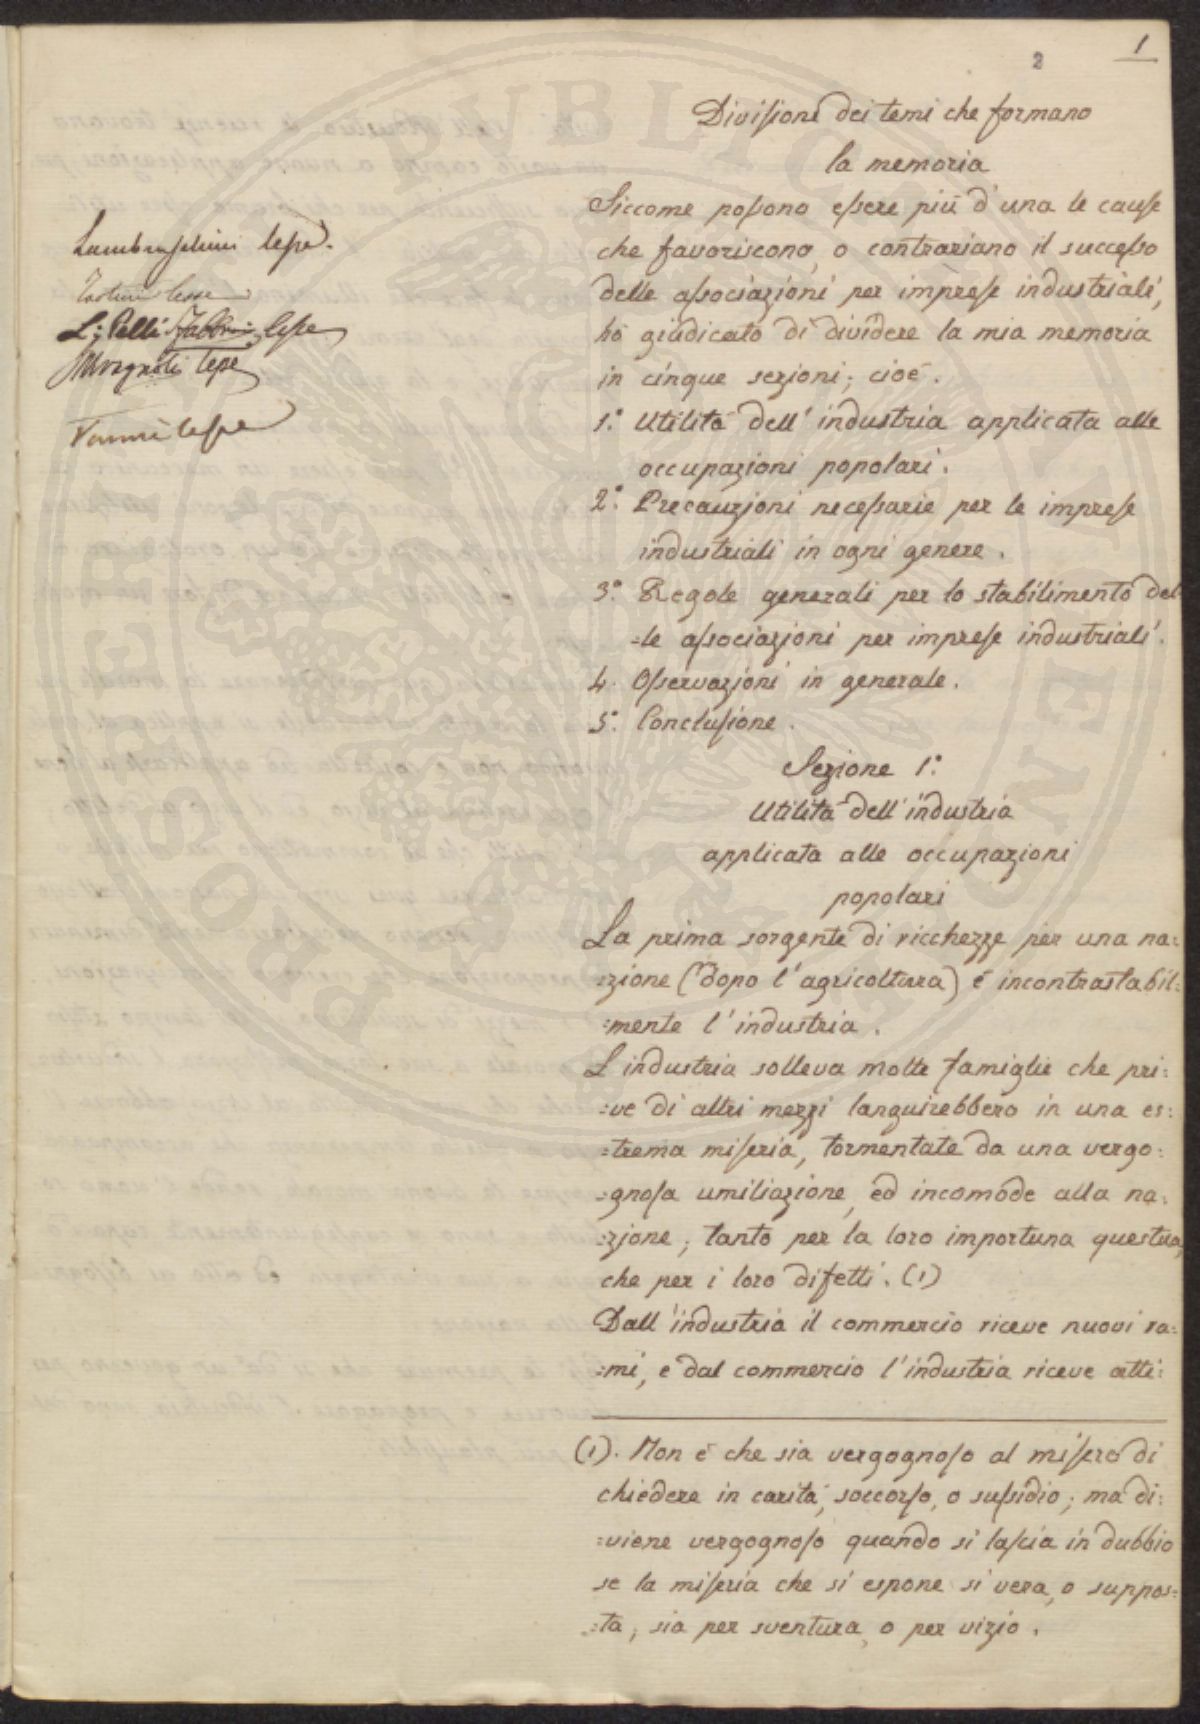 1
2
Divisione dei temi che formano
la memoria
Siccome possono essere più d'una le cause
che favoriscono, o contrariano il successo
delle associazioni per imprese industriali,
hò giudicato di dividere la mia memoria
in cinque sezioni; cioè.
1.° Utilità dell'industria applicata alle
occupazioni popolari.
2.° Precauzioni necessarie per le imprese
industriali in ogni genere.
3.° Regole generali per lo stabilimento del
=le associazioni per imprese industriali.
4. Osservazioni in generale.
5.° Conclusione.
Sezione 1.°
Utilità dell'industria
applicata alle occupazioni
popolari
La prima sorgente di ricchezze per una na=
=zione (dopo l'agricoltura) é incontrastabil=
=mente l'industria.
L'industria solleva molte famiglie che pri=
=ve di altri mezzi languirebbero in una es=
=trema miseria, tormentate da una vergo=
=gnosa umiliazione, ed incomode alla na=
=zione; tanto per la loro importuna questua,
che per i loro difetti. (1)
Dall'industria il commercio riceve nuovi ra=
=mi, e dal commercio l'industria riceve atti=
(1). Non é che sia vergognoso al misero di
chiedere in carità, soccorso, o sussidio; ma di=
=viene vergognoso quando si lascia in dubbio
se la miseria che si espone si vera, o suppos=
=ta; sia per sventura, o per vizio.
Lambruschini lesse.
Tartini lesse
L: Pelli Fabbroni lesse
lesse
Vanni lesse
PROSPERITATI PUBLICAE AUGENDAE